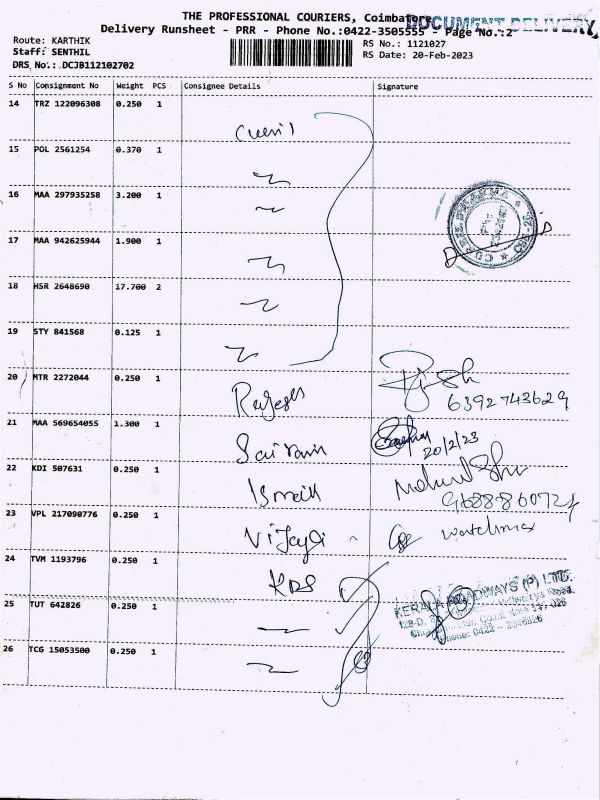 THE PROFESSIONAL COURIERS, Coimbatore
DOCUMENT DELIVERY
Delivery Runsheet - PRR - Phone No.:0422-3505555 - Page No.:2
Route: KARTHIK
RS No.: 1121027
Staff: SENTHIL
RS Date: 20-Feb-2023
DRS No.: DCJB112102702
S No Consignment No Weight PCS Consignee Details Signature
14 TRZ 122096308 0.250 1
15 POL 2561254 0.370 1
16 MAA 297935258 3.200 1
17 MAA 942625944 1.900 1
18 HSR 2648690 17.700 2
19 STY 841568 0.125 1
20 MTR 2272044 0.250 1 Rajesh
6392743629
21 MAA 569654055 1.300 1 Sairam
20/2/23
22 KDI 507631 0.250 1 Ismail
9688860724
23 VPL 217090776 0.250 1 Vijaya watchman
24 TVM 1193796 0.250 1 KRS
KERALA ROADWAYS (P) LTD.
25 TUT 642826 0.250 1
Phone: 0422 -
26 TCG 15053500 0.250 1